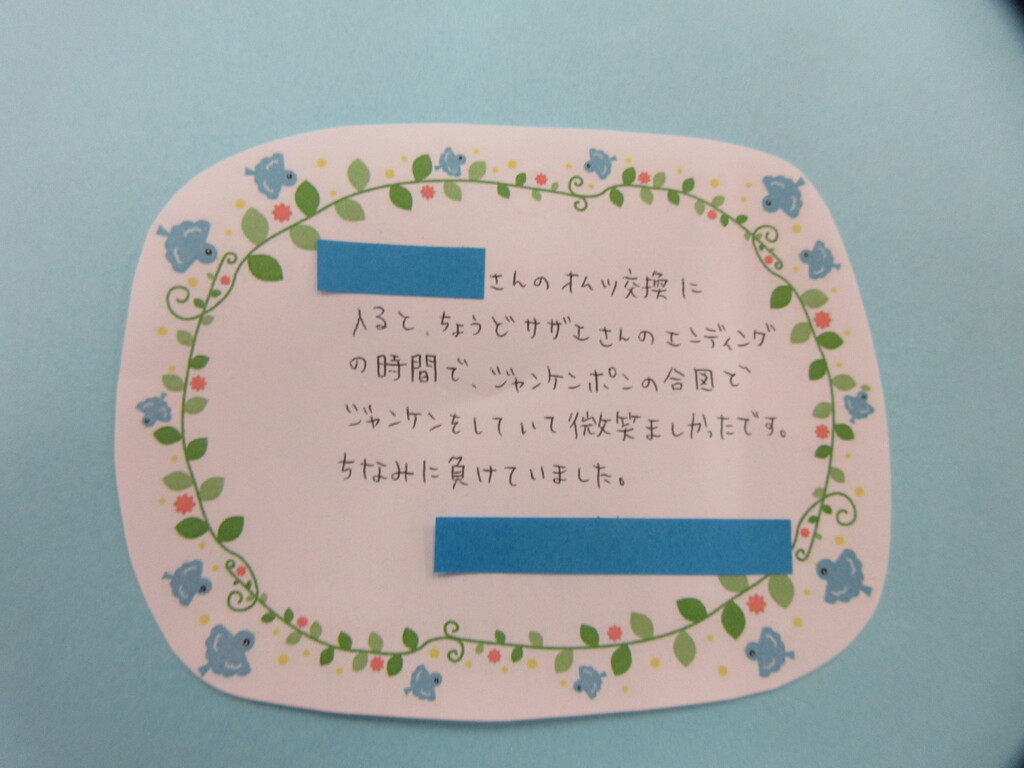 さんのオムツ交換に
入ると、ちょうどサザエさんのエンディング
の時間で、ジャンケンポンの合図で
ジャンケンをしていて微笑ましかったです。
ちなみに負けていました。